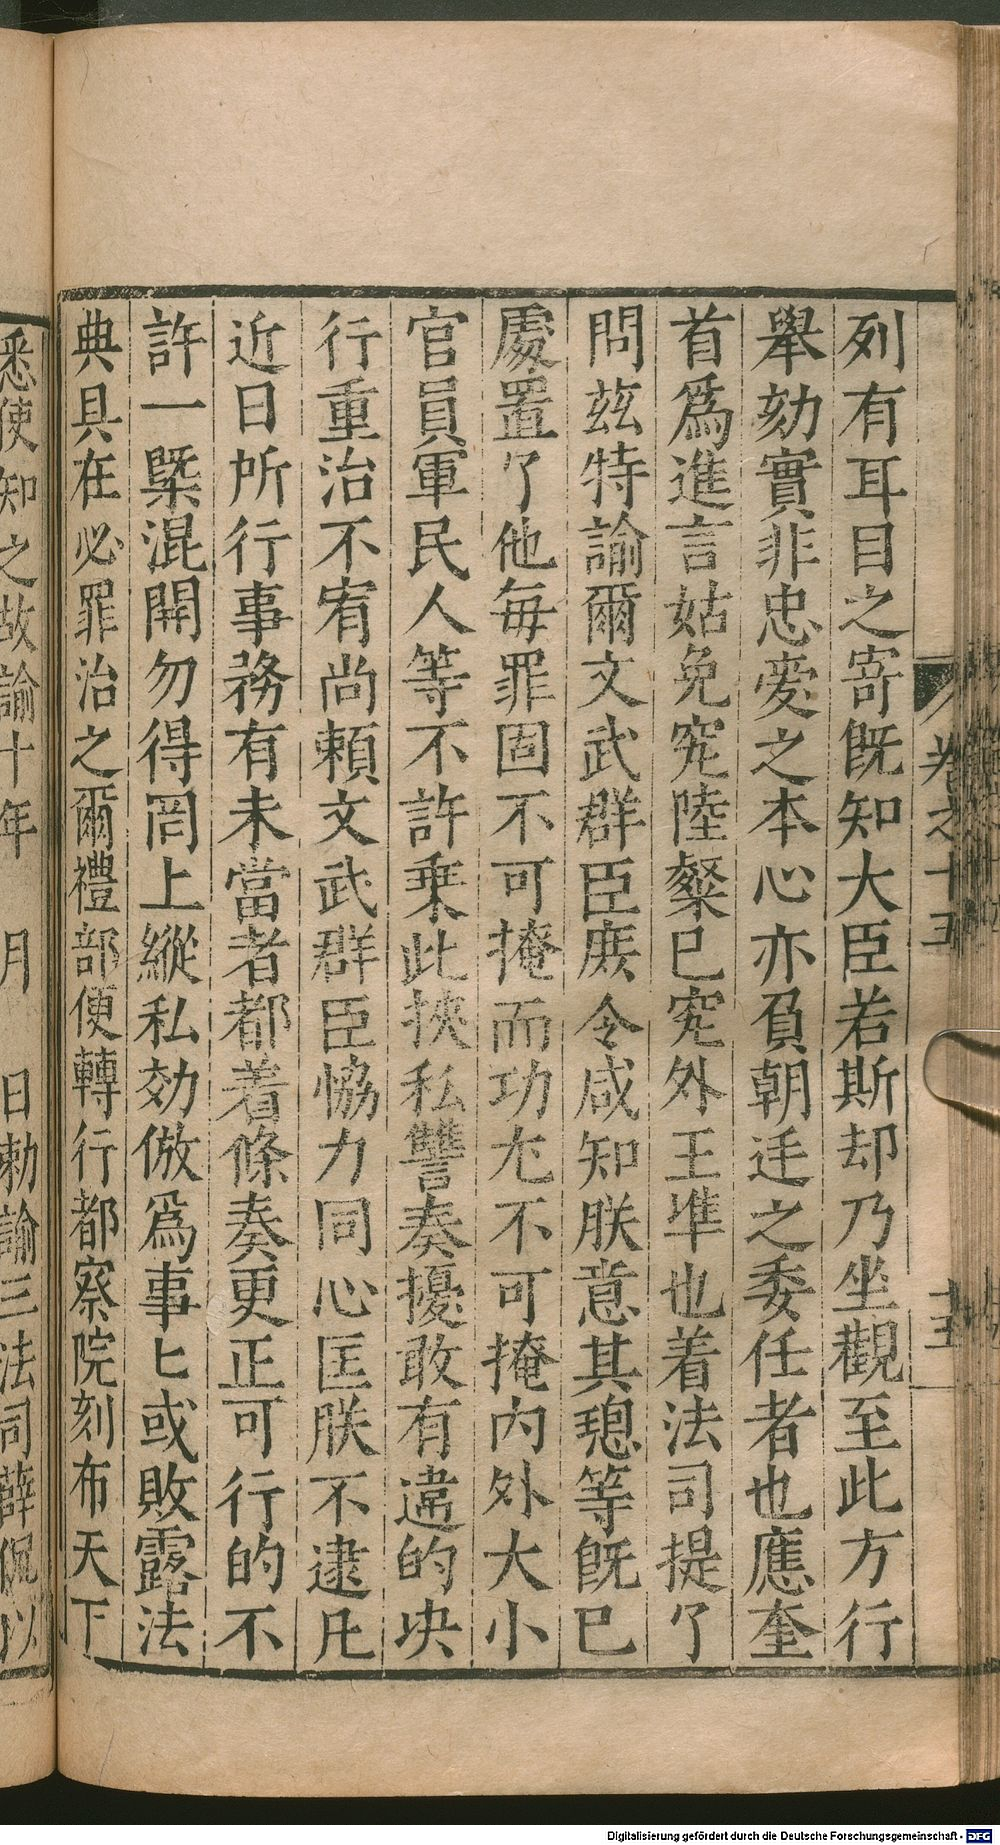 列有耳目之寄旣知大臣若斯却乃坐觀至此方行
舉劾實非忠愛之本心亦負朝廷之委任者也應奎
首爲進言姑免究陸粲已究外王準也着法司提了
問茲特諭爾文武群臣庶令咸知朕意其璁等旣已
處置了他每罪固不可掩而功尤不可掩內外大小
官員軍民人等不許乗此挾私讐奏擾敢有違的决
行重治不宥尚頼文武群臣恊力同心匡朕不逮凡
近日所行事務有未當者都着條奏更正可行的不
許一槩混開勿得罔上縱私効倣爲事匕或敗露法
典具在必罪治之爾禮部便轉行都察院刻布天下
卷之十五
十五
悉使知之故諭十年 月 日勅諭三法司薛侃以
Digitalisierung gefördert durch die Deutsche Forschungsgemeinschaft - DFG